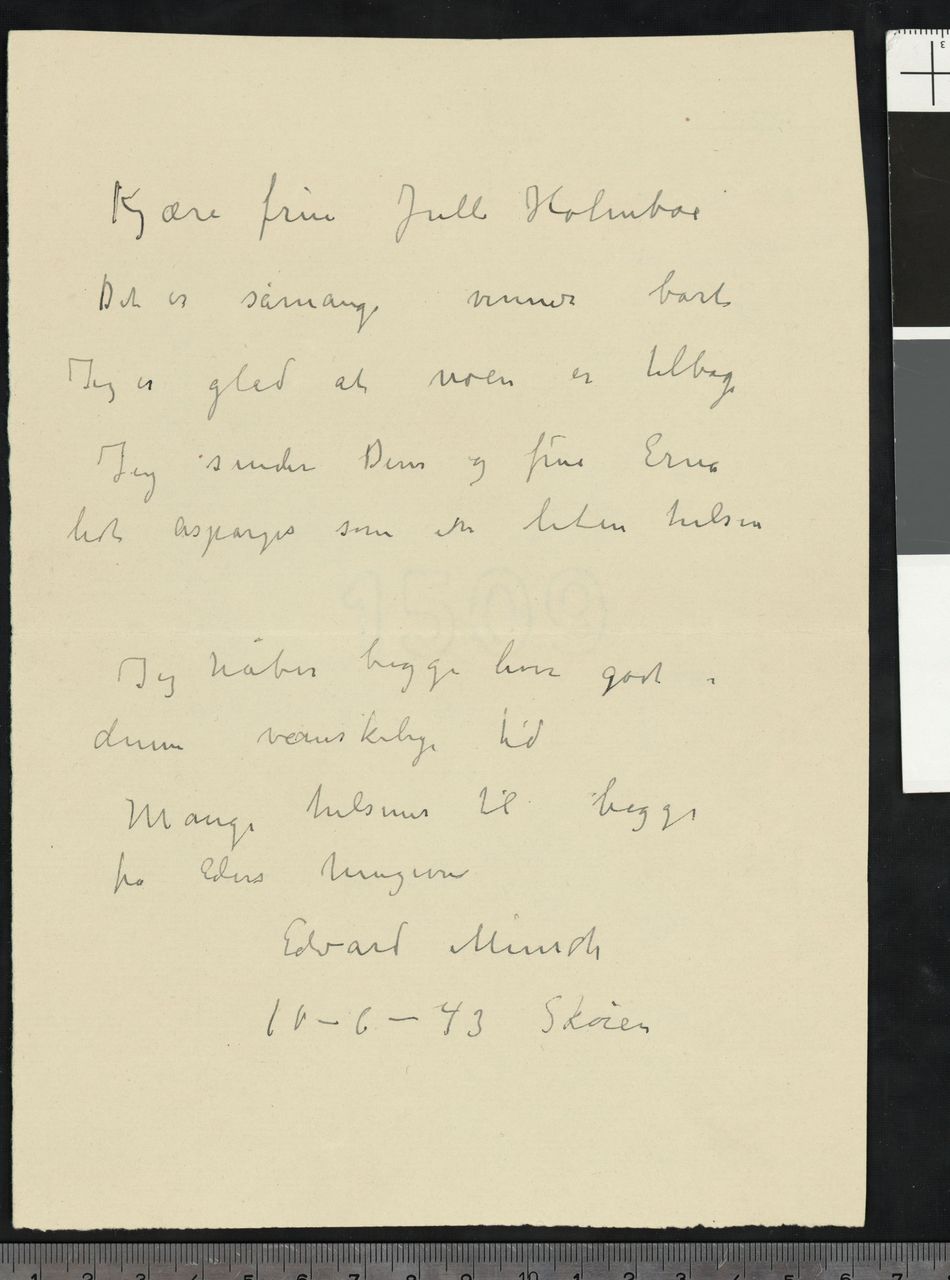 Kjære frue Julle Holmboe
Det er såmange venner borte
Jeg er glad at noen er tilbage
Jeg sender Dem og frue Erna
lidt asparges som en liten hilsen
Jeg håber begge lever godt i
denne vanskelige tid
Mange hilsener til begge
fra Eders hengivne
Edvard Munch
10–6–43 Skøien